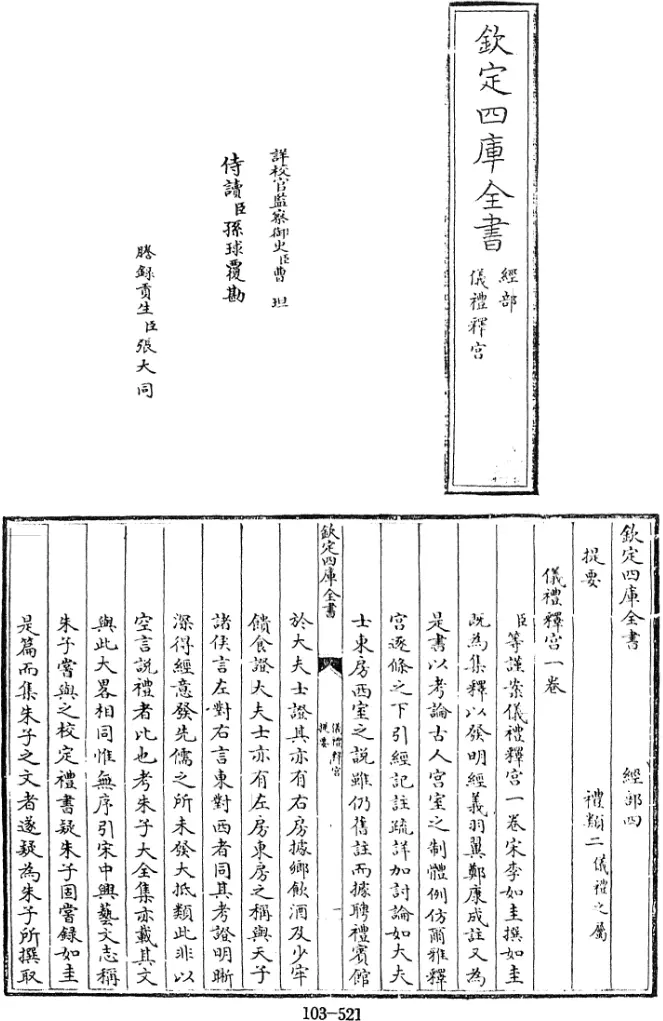 欽定四庫全書
經部
儀禮釋宮
詳校官監察御史臣曹坦
侍讀臣孫球覆勘
謄錄貢生臣張大同
欽定四庫全書
經部四
提要
禮類二儀禮之屬
儀禮釋宮一卷
臣等謹案儀禮釋宮一卷宋李如圭撰如圭
既為集釋以發明經義羽翼鄭康成註又為
是書以考論古人宮室之制體例仿爾雅釋
宮逐條之下引經記註疏詳加討論如大夫
士東房西室之說雖仍舊註而據聘禮賓館
欽定四庫全書
儀禮釋宮
提要
一
於大夫士證其亦有右房據鄉飲酒及少牢
饋食證大夫士亦有左房東房之稱與天子
諸侯言左對右言東對西者同其考證明晰
深得經意發先儒之所未發大抵類此非以
空言說禮者比也考朱子大全集亦載其文
與此大畧相同惟無序引宋中興藝文志稱
朱子嘗與之校定禮書疑朱子固嘗録如圭
是篇而集朱子之文者遂疑為朱子所撰取
103-521